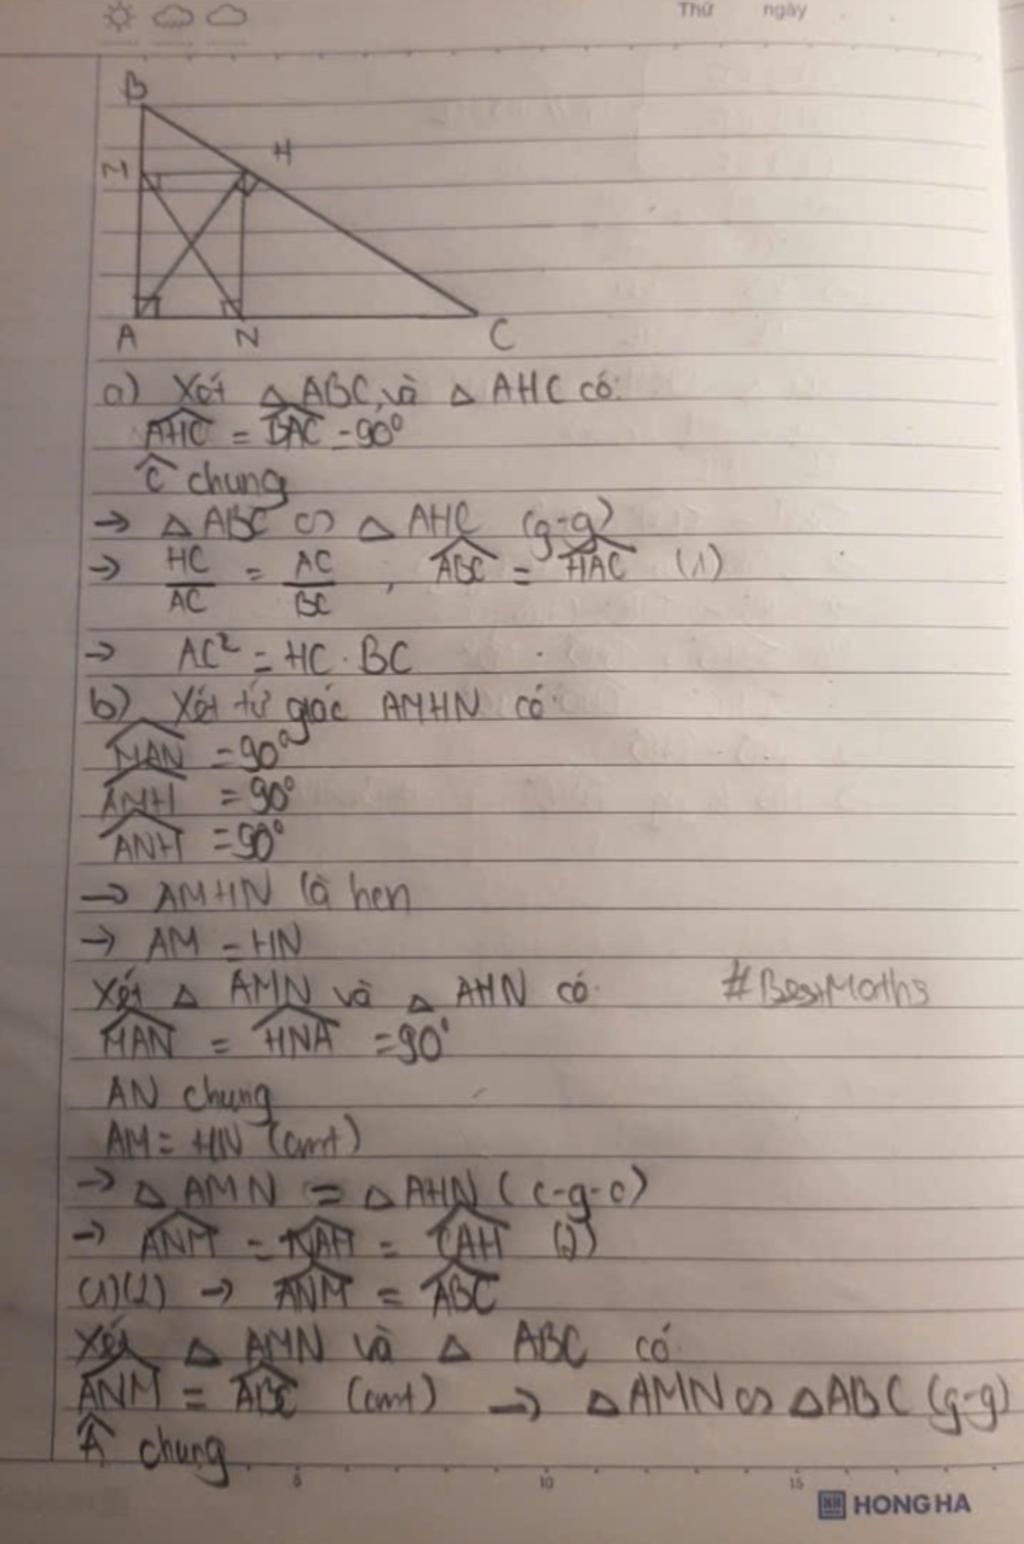 Thứ ngày
B
M
H
A
N
C
a) Xét △ ABC và △ AHC có:
AHC = BAC = 90°
C chung
→ △ ABC ∽ △ AHC (g-g)
→ HC/AC = AC/BC , ABC = HAC (1)
→ AC² = HC . BC
b) Xét tứ giác AMHN có
MAN = 90°
ANH = 90°
ANH = 90°
→ AMHN là hcn
→ AM = HN
Xét △ AMN và △ AHN có #BestMaths
MAN = HNA = 90°
AN chung
AM = HN (cmt)
→ △ AMN = △ AHN (c-g-c)
→ ANM = NAH = CAH (2)
(1)(2) → ANM = ABC
Xét △ AMN và △ ABC có
ANM = ABC (cmt) → △ AMN ∽ △ ABC (g-g)
A chung
5 10 15
HONG HA